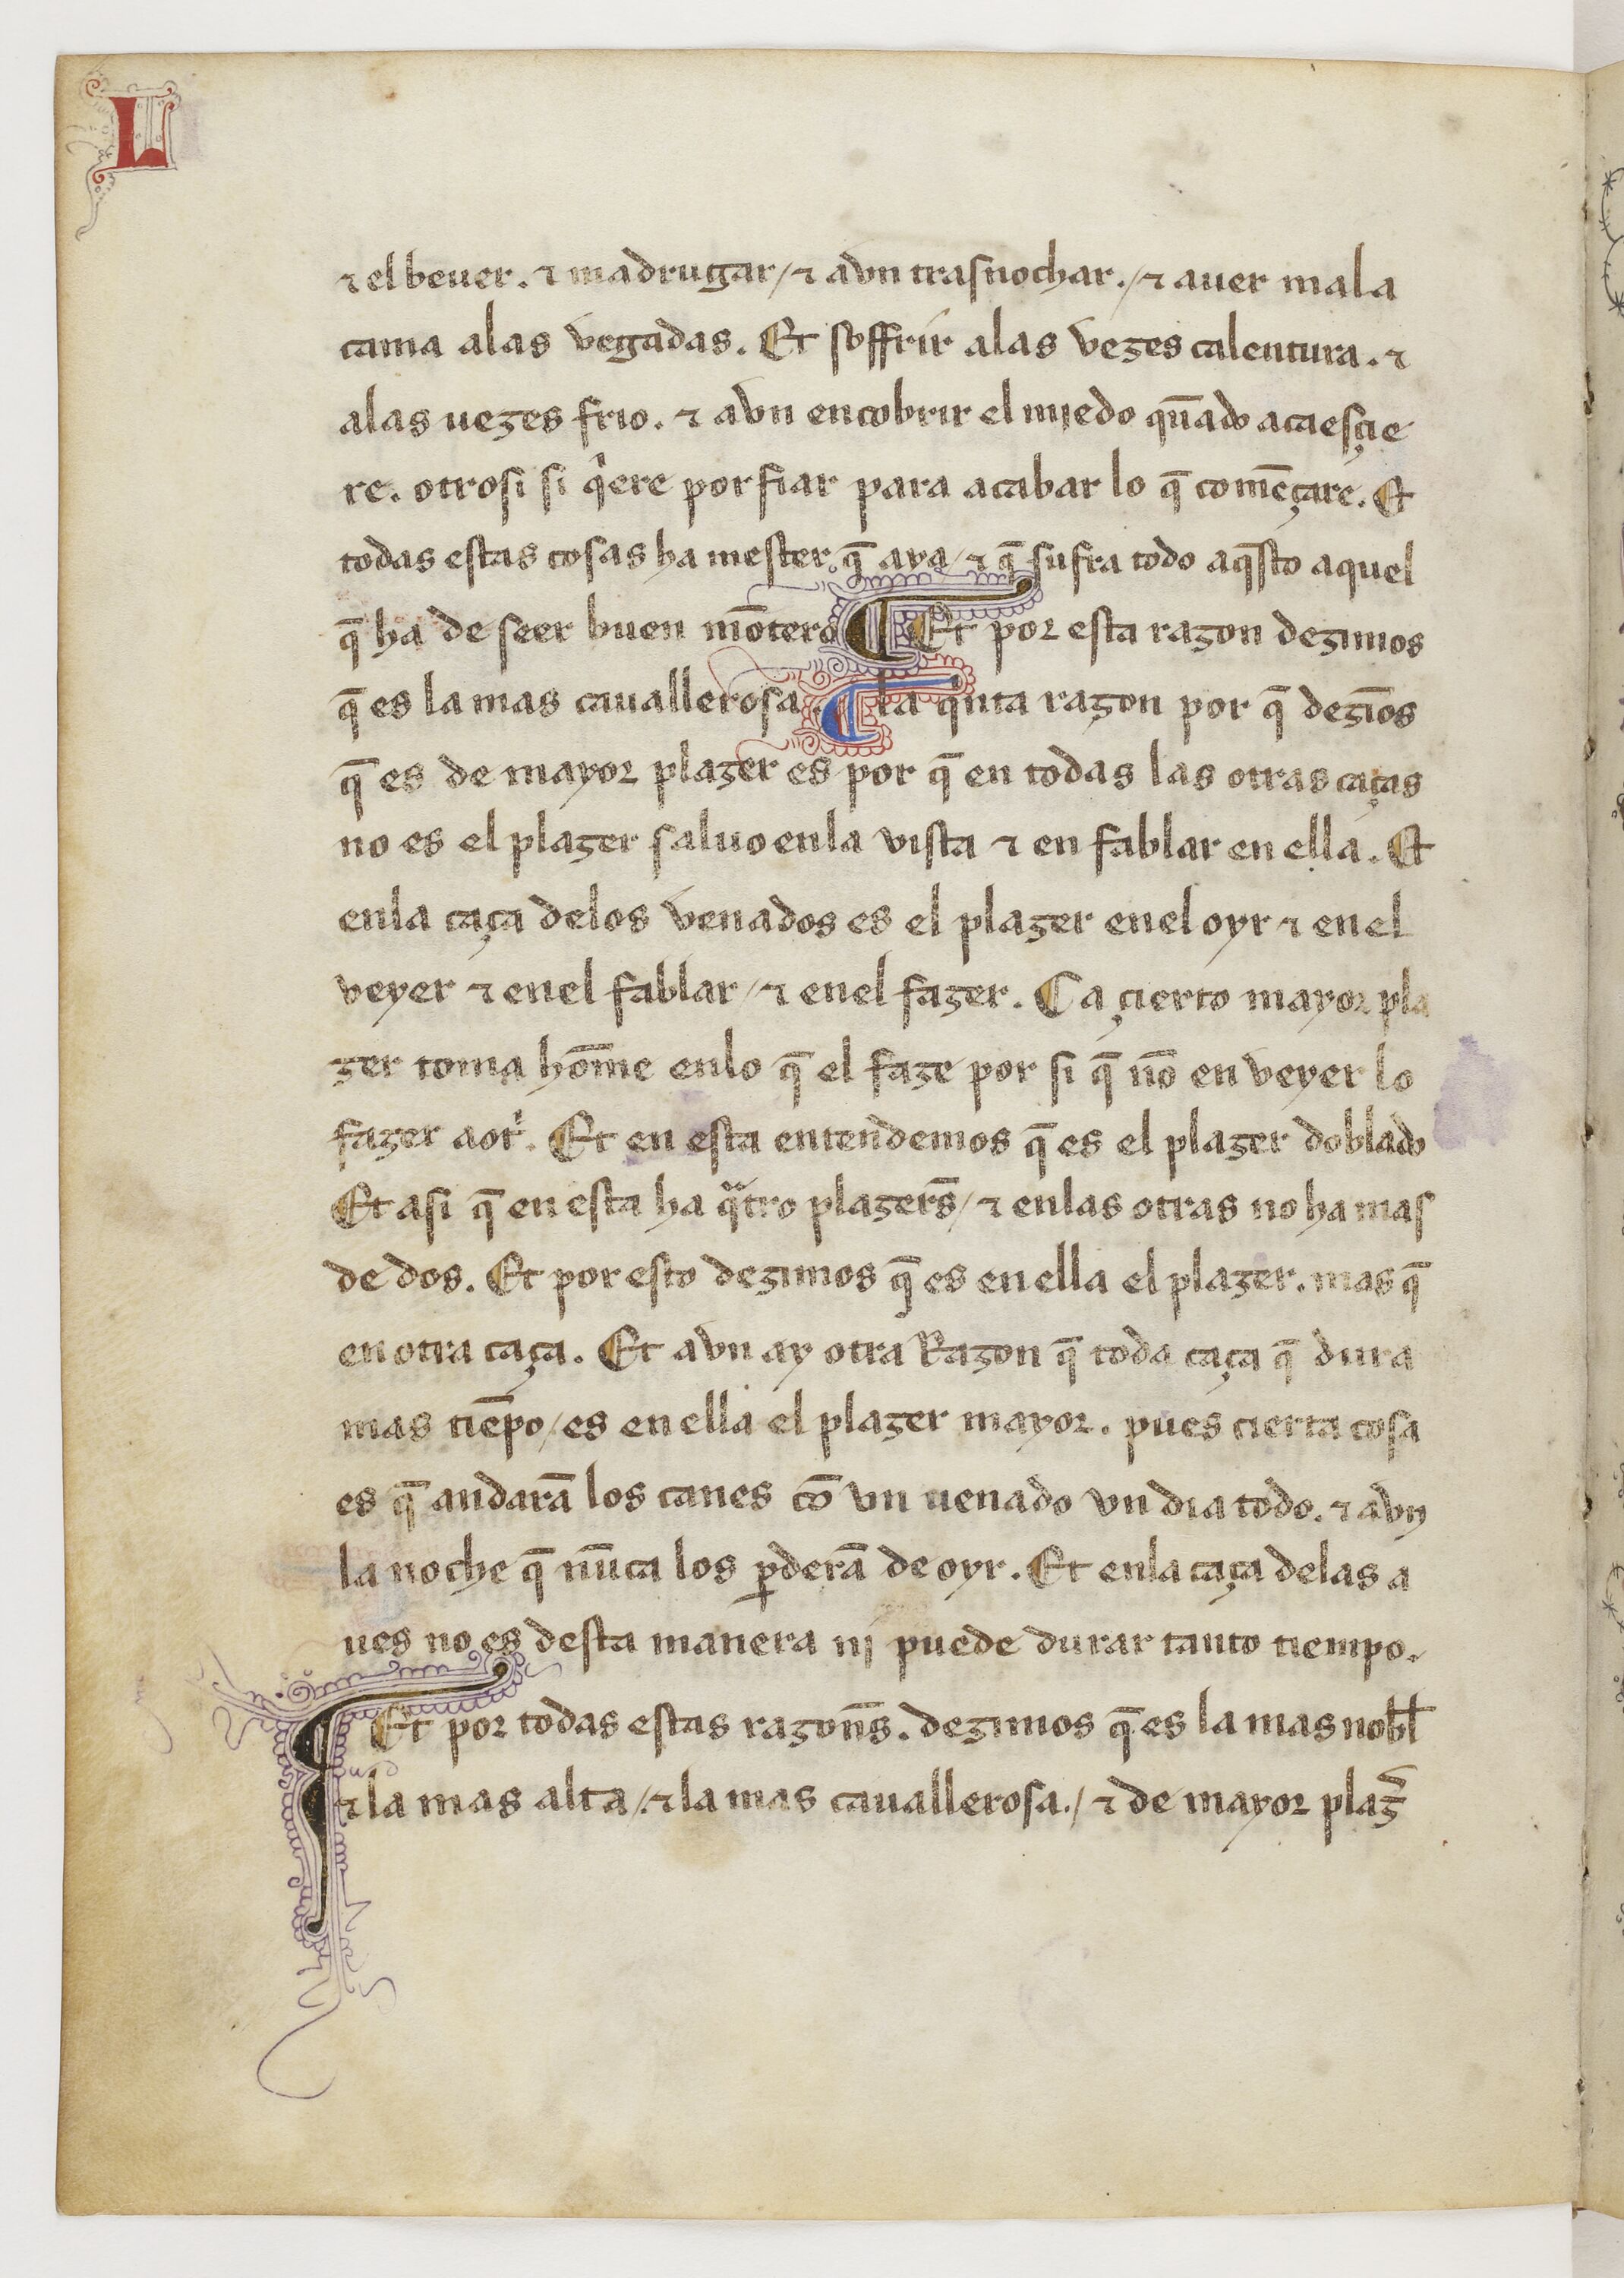 L
⁊ el beuer. ⁊ madrugar / ⁊ avn trasnochar. / ⁊ auer mala
cama alas vegadas. Et soffrir alas vezes calentura. ⁊
alas uezes frio. ⁊ avn encobrir el miedo qn̄ado acaesçie
re. otrosi si qͥere porfiar para acabar lo q̄ comēçare. Et
todas estas cosas ha mester. q̄ aya / ⁊ q̄ sufra todo aq̄sto aquel
q̄ ha de seer buen mōtero ¶ Et por esta razon dezimos
q̄ es la mas cauallerosa. ¶ la qͥnta razon por q̄ dezīos
q̄ es de mayor plazer es por q̄ en todas las otras caças
no es el plazer saluo enla vista ⁊ en fablar en ella. Et
enla caça delos venados es el plazer enel oyr ⁊ en el
veyer ⁊ enel fablar / ⁊ enel fazer. Ca çierto mayor pla
zer toma hōme enlo q̄ el faze por si q̄ nō en veyer lo
fazer a otͥ. Et en esta entendemos q̄ es el plazer doblado
Et asi q̄ en esta ha qᷓtro plazer̄s / ⁊ enlas otras no ha mas
de dos. Et por esto dezimos q̄ es en ella el plazer. mas q̄
en otra caça. Et avn ay otra Razon q̄ toda caça q̄ dura
mas tiēpo / es en ella el plazer mayor. pues cierta cosa
es q̄ andarā los canes cō vn uenado vn dia todo. ⁊ avn
la noche q̄ nūca los ꝑderā de oyr. Et enla caça delas a
ues no es desta manera nj puede durar tanto tiempo.
¶ Et por todas estas razon̄s. dezimos q̄ es la mas nobł
⁊ la mas alta /. ⁊ la mas cauallerosa. / ⁊ de mayor plaz̄